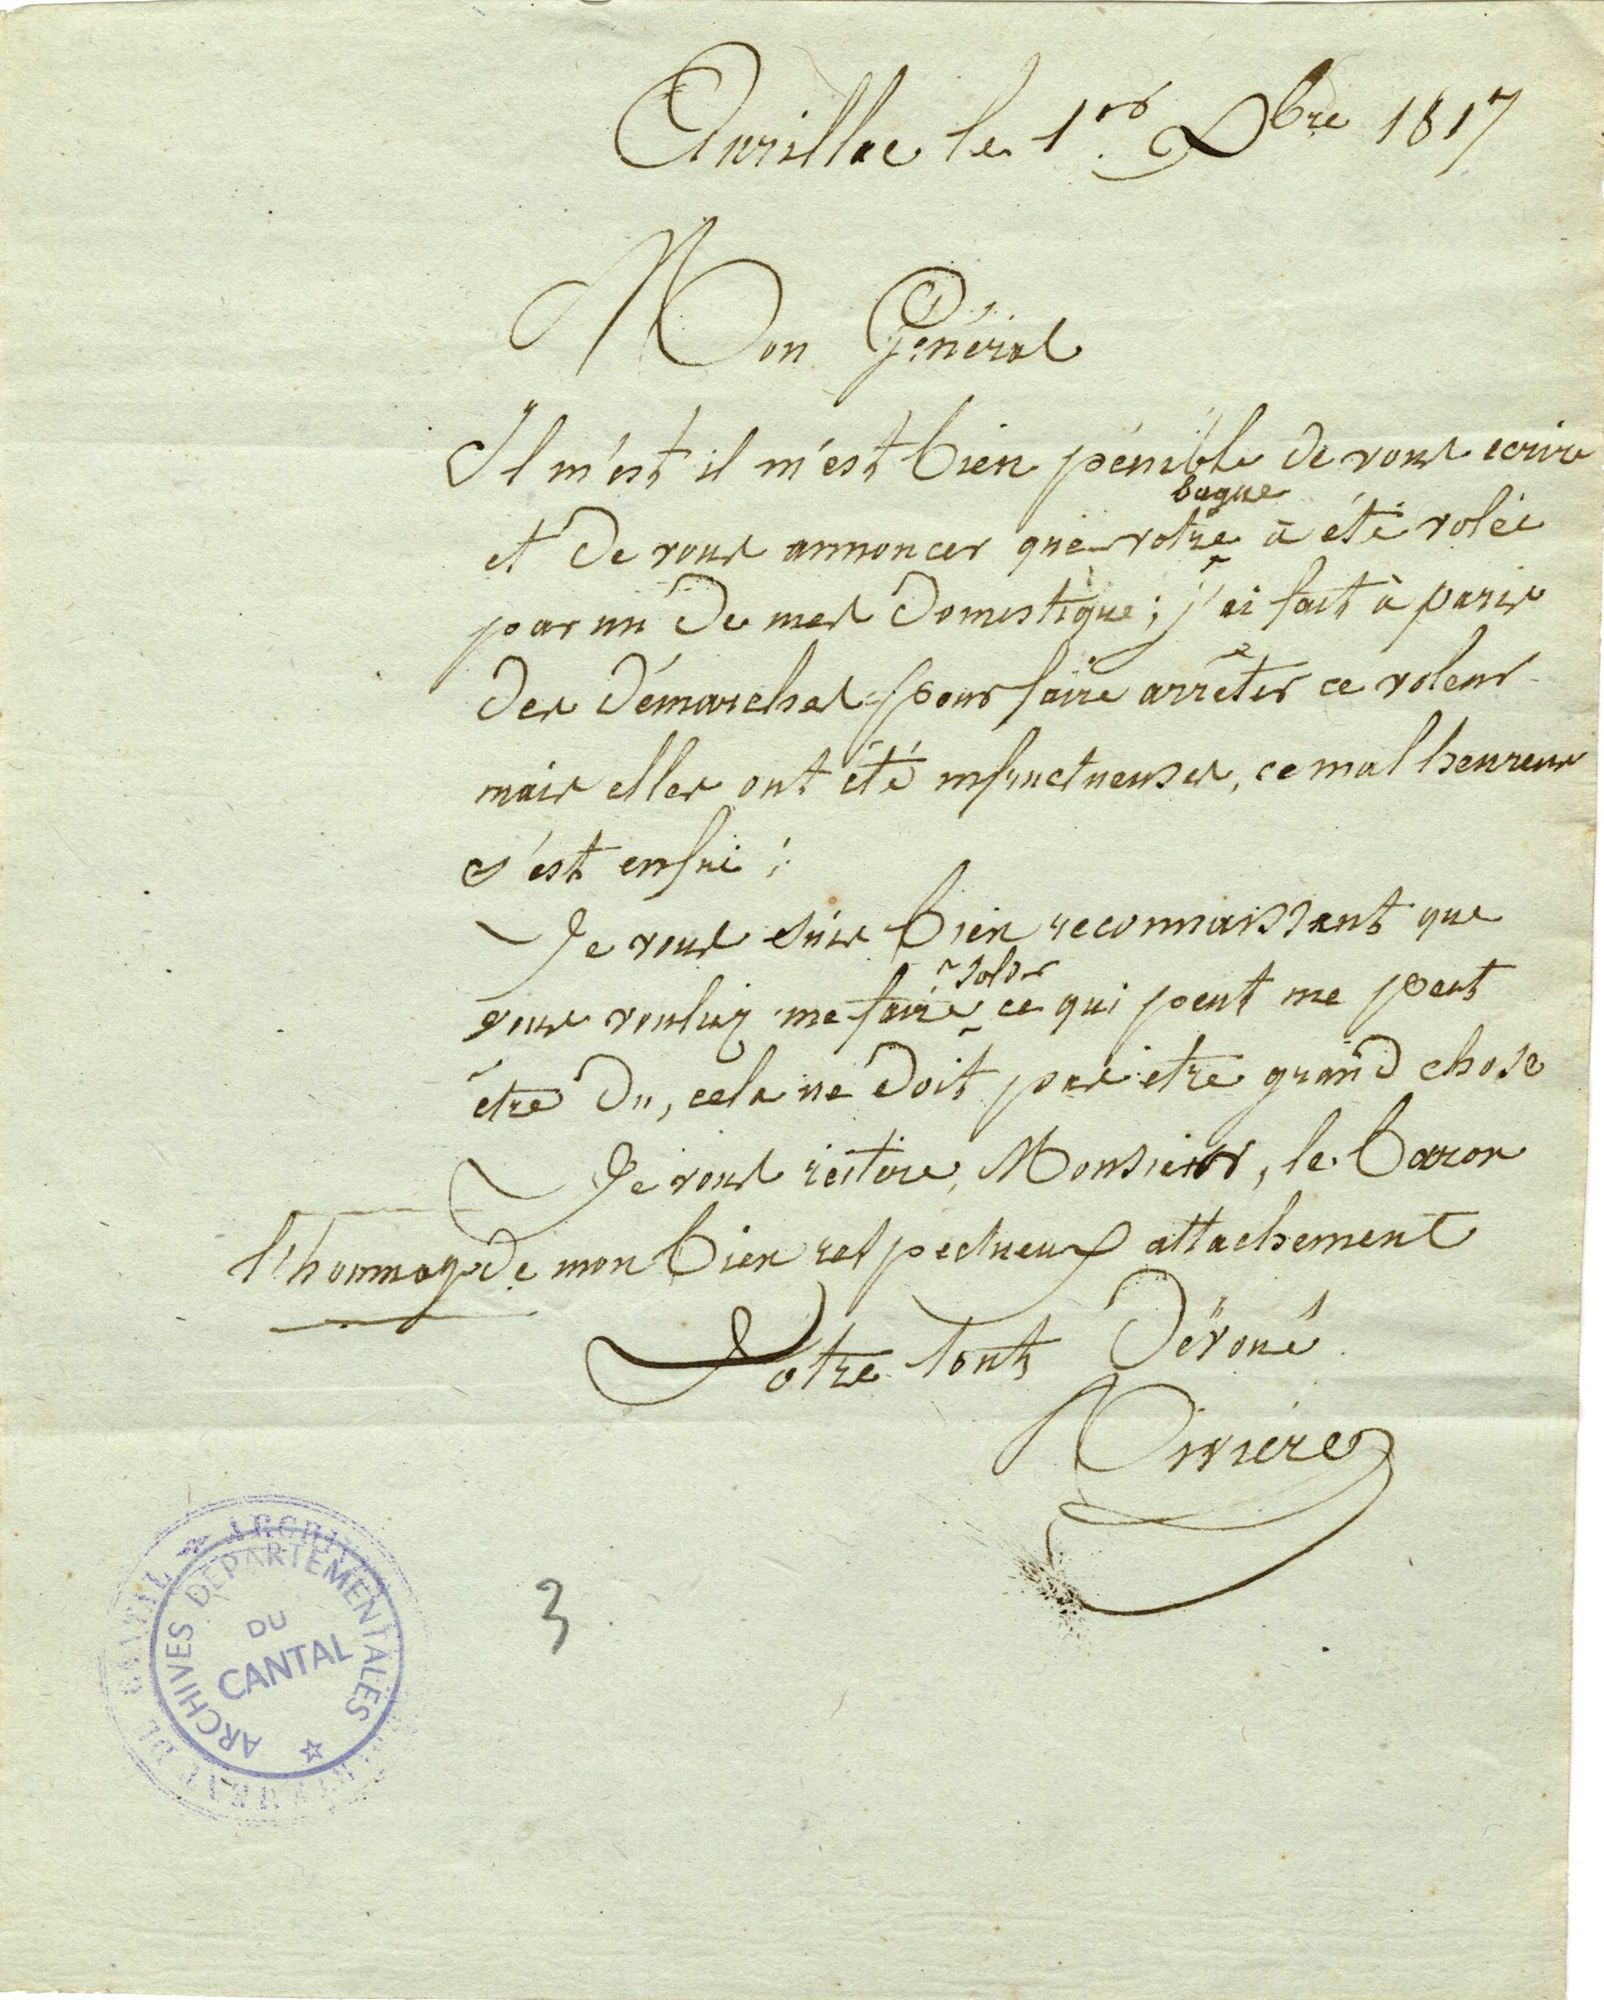 Aurillac le 1er Xbre 1817
Mon Général
Il m'est il m'est bien pénible de vous ecrire
bague
et de vous annoncer que votre à été volée
par un de mes domestique; j'ai fait à paris
des démarches pour faire arrêter ce voleur
mais elles ont été infructueuses, ce malheureux
s'est enfui;
Je vous suis bien reconnaissant que
solder
vous vouliez me faire ce qui peut me peut
être du, cela ne doit pas être grand chose
Je vous réitère, Monsieur, le baron
l'hommage de mon bien respectueux attachement
Votre tout dévoué
Rivière
3
ARCHIVES DEPARTEMENTALES
DU
CANTAL